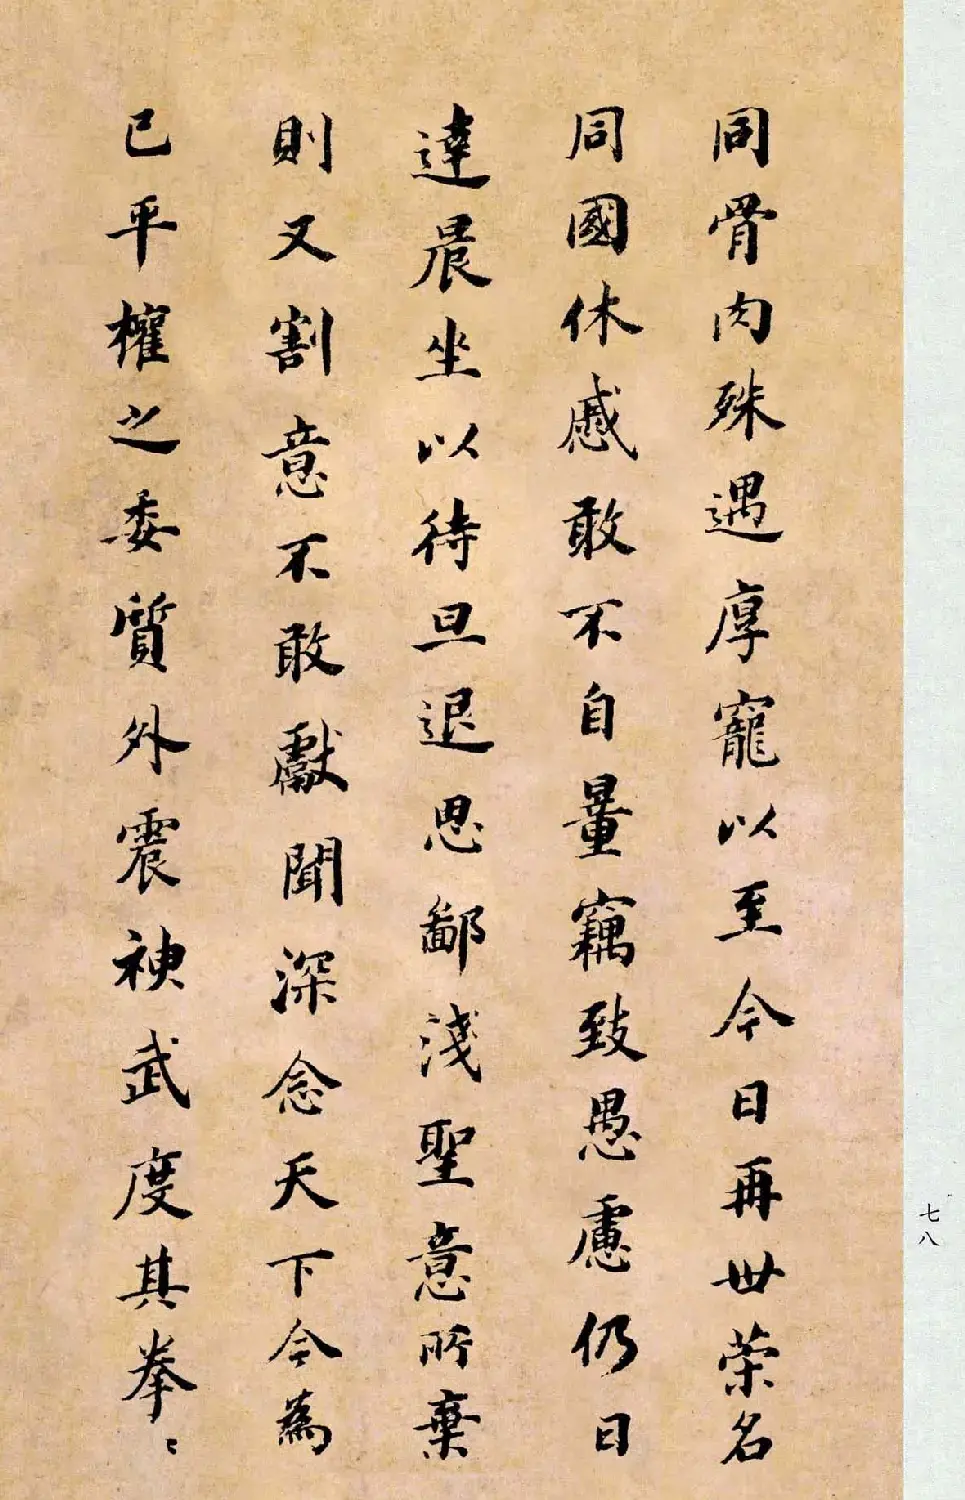 同骨肉殊遇厚寵以至今日再世荣名
同國休戚敢不自量竊致愚慮仍日
達晨坐以待旦退思鄙淺聖意所棄
則又割意不敢獻聞深念天下今為
已平權之委質外震神武度其拳〻
七八